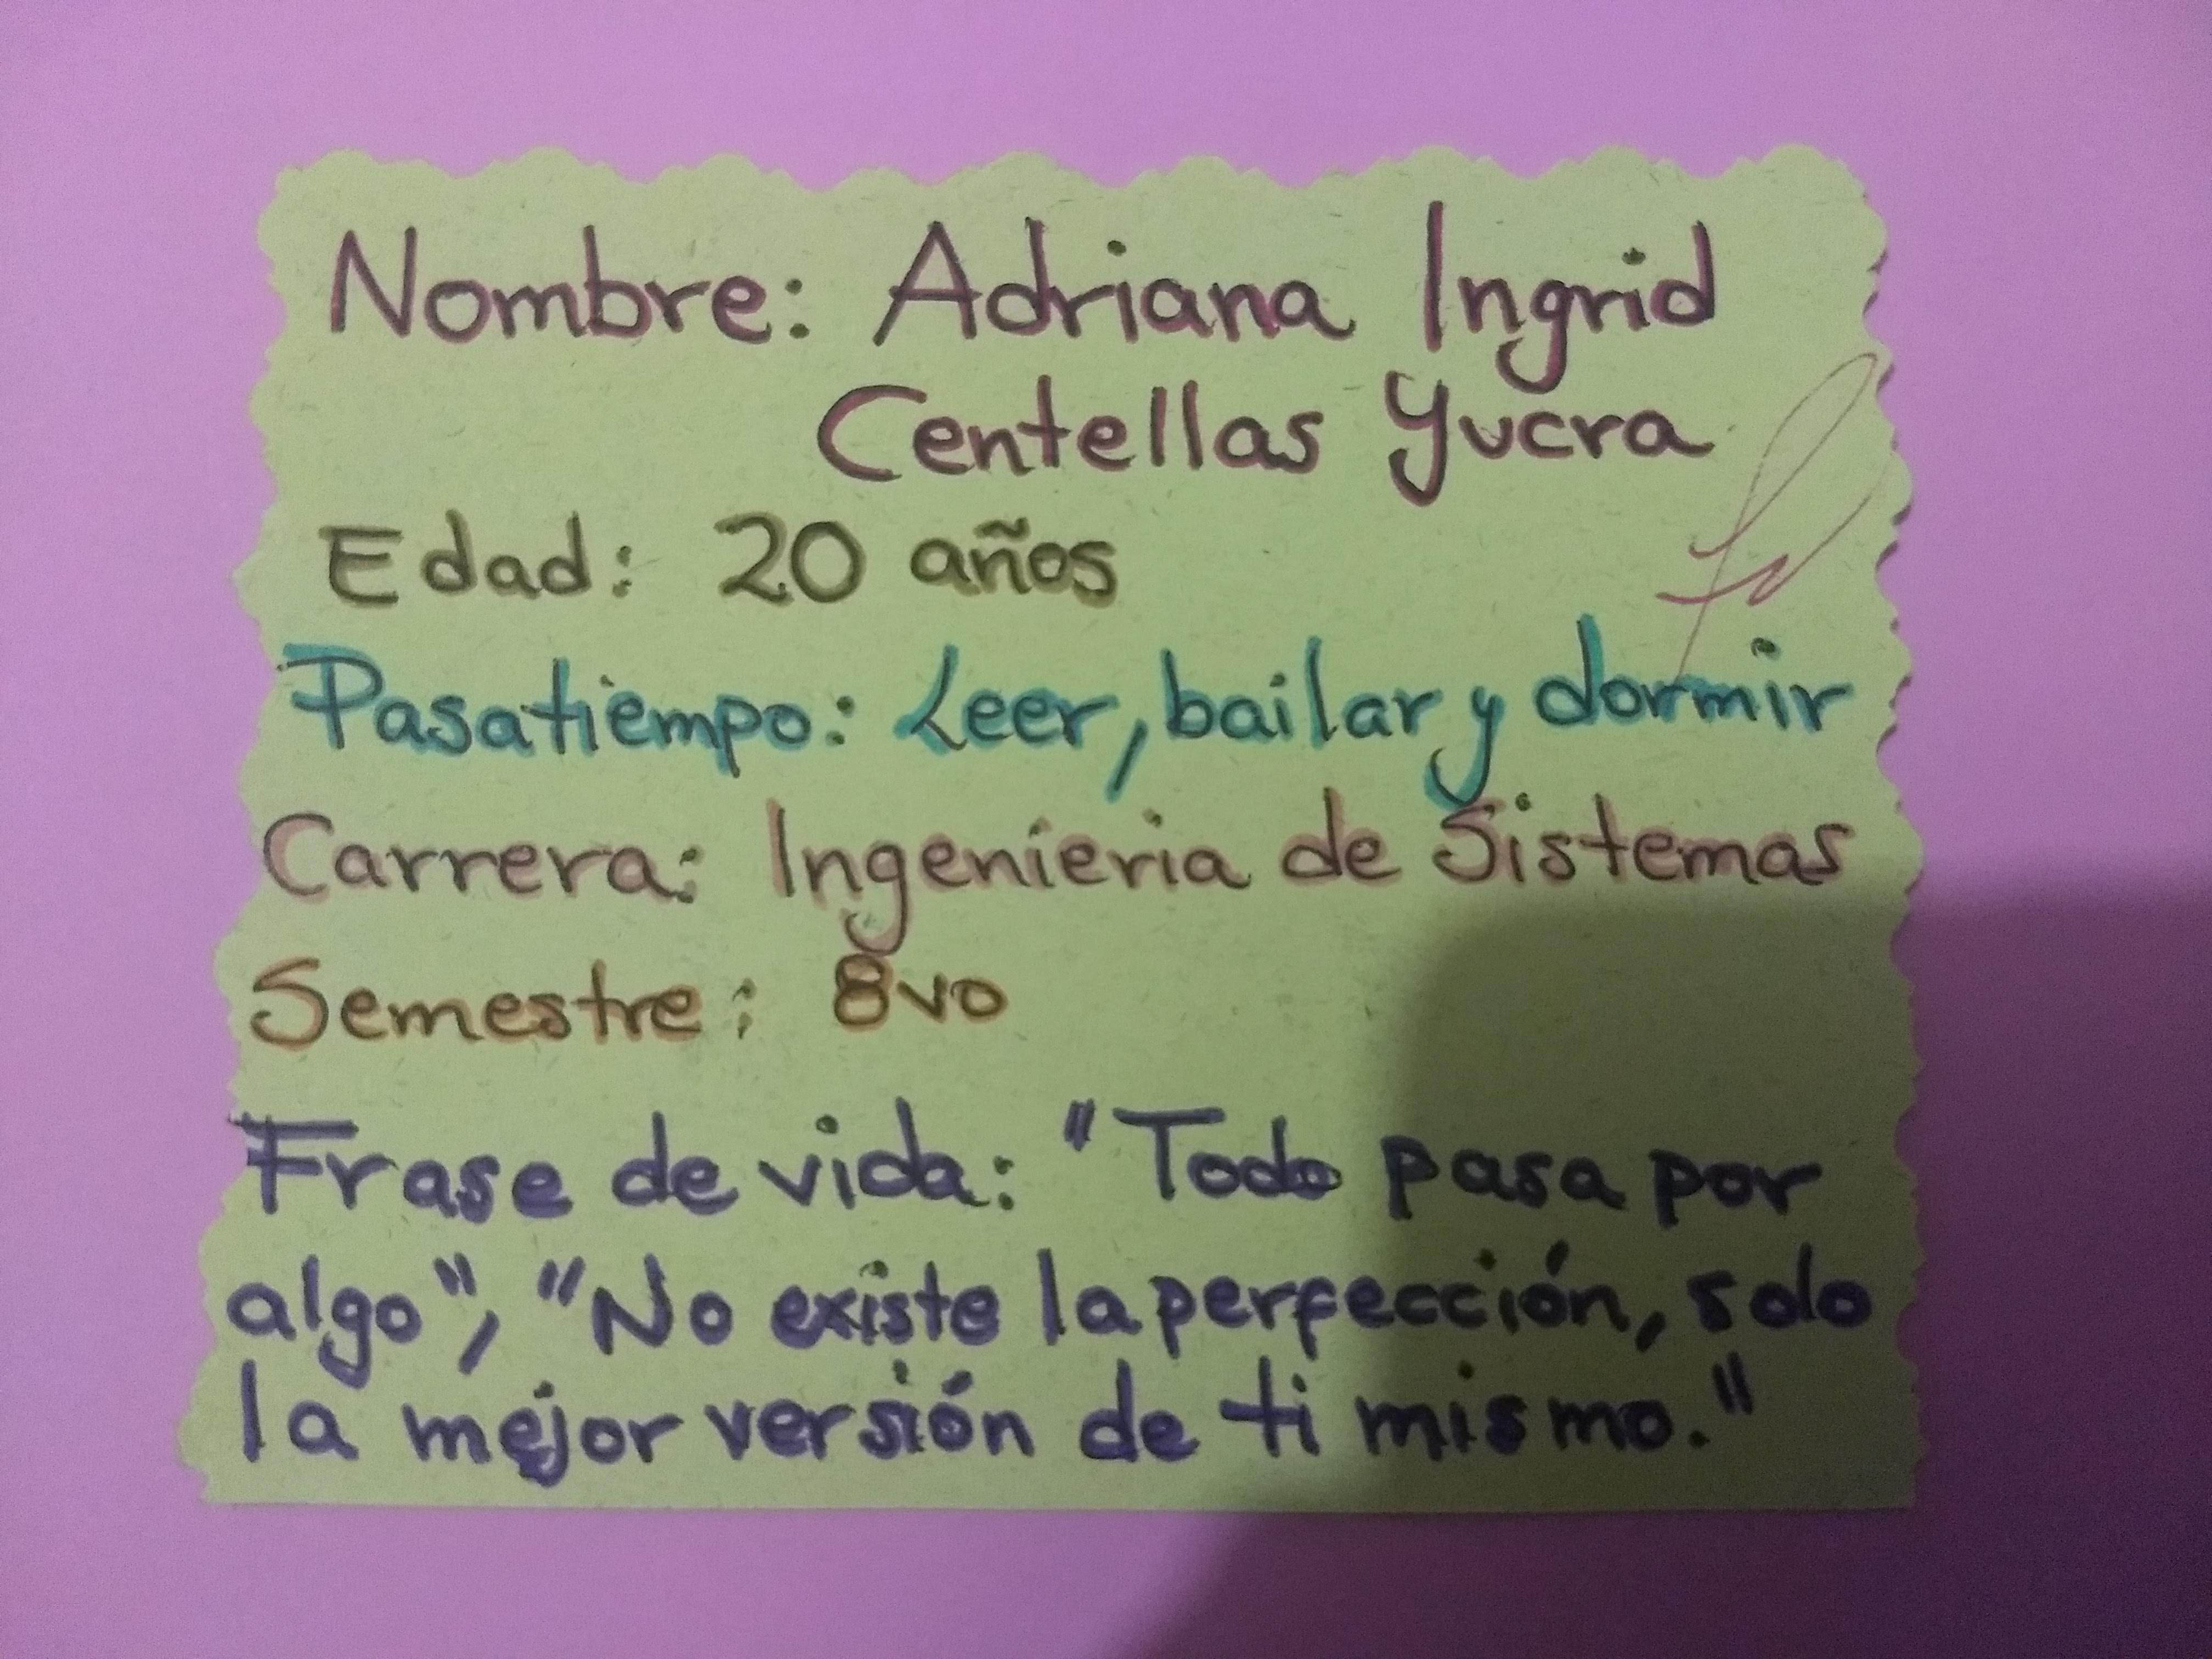 Nombre: Adriana Ingrid
Centellas Yucra
Edad: 20 años
Pasatiempo: Leer, bailar y dormir
Carrera: Ingenieria de Sistemas
Semestre: 8vo
Frase de vida: "Todo pasa por
algo", "No existe la perfección, solo
la mejor versión de ti mismo."